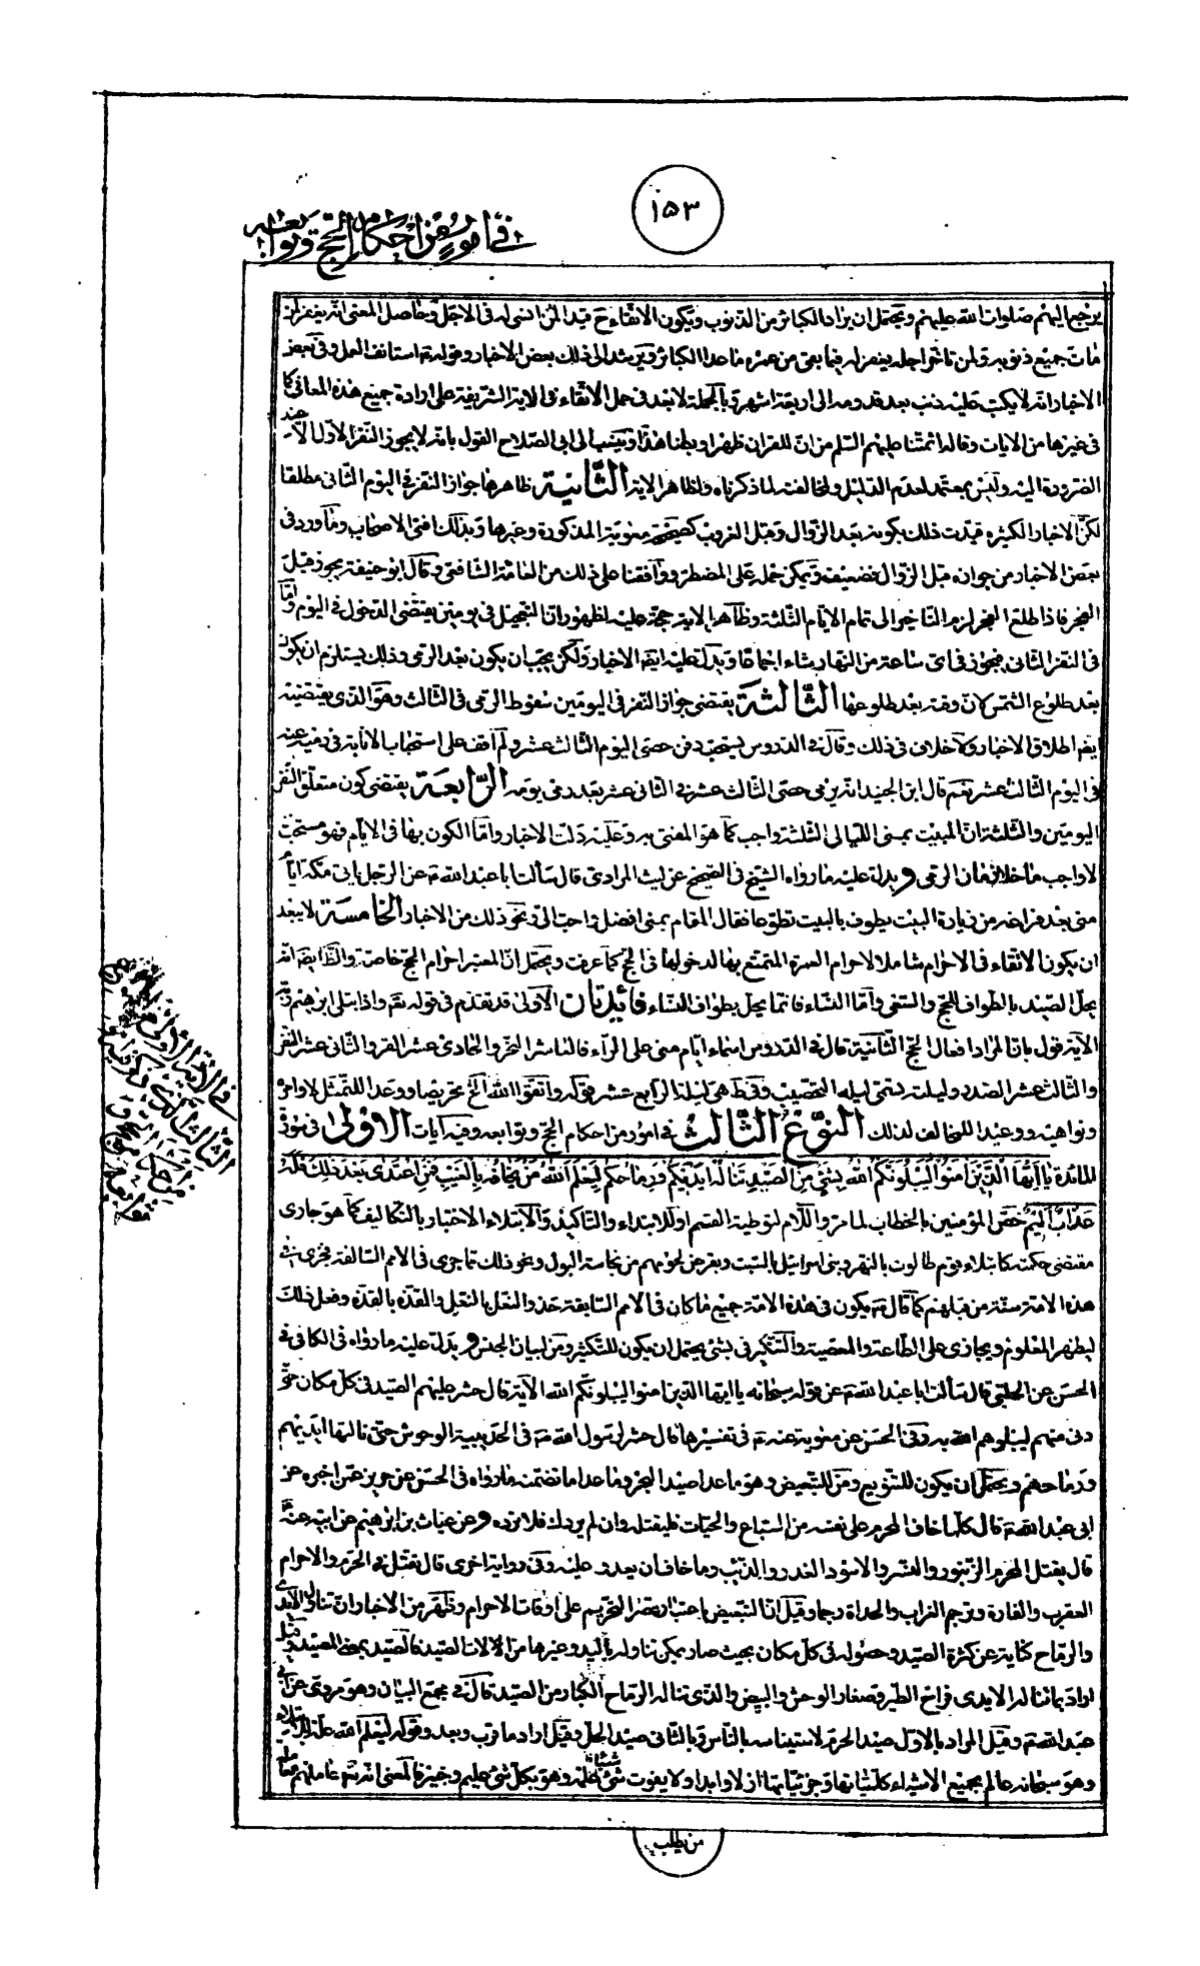 ١٥٣
في امور من احكام الحج وتوابعه
يرجع اليهم صلوات الله عليهم ويحتمل ان يراد الكبائر من الذنوب ويكون الاتقاء ح قيد المن انسى له فى الاجل وحاصل المعنى انه يغفر لمن
مات جميع ذنوبه ولمن تاخر اجله يغفر له فيما بقى من عمره ماعدا الكبائر ويرشد الى ذلك بعض الاخبار وقوله ع استانف العمل وفى بعض
الاخبار انه لا يكتب عليه ذنب بعد قدومه الى اربعة اشهر وبالجملة لا بعد فى حمل الاتقاء فى الاية الشريفة على ارادة جميع هذه المعانى كما
فى غيرها من الايات وقد قال ائمتنا عليهم السلم من ان للقران ظهرا وبطنا هذا وينسب الى ابى الصلاح القول بانه لا يجوز النفر الاول الا عند
الضرورة اليه وليس بمعتمد لعدم الدليل ولمخالفته لما ذكرناه ولظاهر الاية الثانية ظاهرها جواز النفر فى اليوم الثانى مطلقا
لكن الاخبار الكثيرة قيدت ذلك بكونه بعد الزوال وقبل الغروب كصحيحة معوية المذكورة وغيرها وبذلك افتى الاصحاب وما ورد فى
بعض الاخبار من جوازه قبل الزوال فضعيف ويمكن حمله على المضطر ووافقنا على ذلك من العامة الشافعى وقال ابو حنيفة يجوز قبل
الفجر فاذا طلع الفجر لزم التاخير الى تمام الايام الثلثة وظاهر الاية حجة عليه لظهور ان التعجيل فى يومين يقتضى الدخول فى اليوم واما
فى النفر الثانى فيجوز فى اى ساعة من النهار شاء اجماعا ويدل عليه ايضا الاخبار ولكن يجب ان يكون بعد الرمى وذلك يستلزم ان يكون
بعد طلوع الشمس لان وقته بعد طلوعها الثالثة يقتضى جواز النفر فى اليومين سقوط الرمى فى الثالث وهو الذى يقتضيه
ايضا اطلاق الاخبار ولا خلاف فى ذلك وقال فى الدروس يستحب دفن حصى اليوم الثالث عشر ولم اقف على استحباب الانابة فى دفنه عنه
فى اليوم الثالث عشر نعم قال ابن الجنيد انه يرمى حصى الثالث عشر فى الثانى عشر بعد رمى يومه الرابعة يقتضى كون متعلق النفر
اليومين والثلثة ان المبيت بمنى الليالى الثلثة واجب كما هو المفتى به وعليه دلت الاخبار واما الكون بها فى الايام فهو مستحب
لا واجب ما خلا زمان الرمى ويدل عليه مارواه الشيخ فى الصحيح عن ليث المرادى قال سألت ابا عبد الله ع عن الرجل ياتى مكة ايام
منى بعد فراغه من زيارة البيت يطوف بالبيت تطوعا فقال المقام بمنى افضل واحب الى نحو ذلك من الاخبار الخامسة لا يبعد
ان يكون الاتقاء فى الاحرام شاملا لاحرام العمرة المتمتع بها لدخولها فى الحج كما عرفت ويحتمل ان المعتبر احرام الحج خاصة والظاهر ايضا انه
يحل الصيد بالطواف للحج والسعى واما النساء فانما يحل بطواف النساء فائدتان الاولى قد تقدم فى قوله تعالى واذ ابتلى ابرهيم ربه
الاية قول بان المراد افعال الحج الثانية قال فى الدروس اسماء ايام منى على الراء فالعاشر النحر والحادى عشر القر والثانى عشر النفر
والثالث عشر الصدر وليلته تسمى ليلة التحصيب وفى ط هى ليلة الرابع عشر قوله واتقوا الله الخ تحريضا ووعدا للتمثل لاوامره
ونواهيه ووعيدا للمخالف لذلك النوع الثالث فى امور من احكام الحج وتوابعه وفيه ايات الاولى فى سورة
المائدة يا ايها الذين امنوا ليبلونكم الله بشئ من الصيد تناله ايديكم ورماحكم ليعلم الله من يخافه بالغيب فمن اعتدى بعد ذلك فله
عذاب اليم خص المؤمنين بالخطاب لما مر واللام لتوطية القسم او للابتداء والتاكيد والابتلاء الاختبار بالتكاليف كما هو جارى
مقتضى حكمته كابتلاء قوم طالوت بالنهر وبنى اسرائيل بالسبت وبقرض لحومهم من نجاسة البول ونحو ذلك مما جرى فى الامم السالفة فجرى فى
هذه الامة سنة من قبلهم كما قال ع يكون فى هذه الامة جميع ما كان فى الامم السابقة حذو النعل بالنعل والقذة بالقذة وفعل ذلك
ليظهر المعلوم ويجازى على الطاعة والمعصية والتنكير فى بشئ يحتمل ان يكون للتكثير ومن لبيان الجنس ويدل عليه مارواه فى الكافى فى
الحسن عن الحلبى قال سألت ابا عبد الله ع عن قوله سبحانه يا ايها الذين امنوا ليبلونكم الله الاية قال حشر عليهم الصيد فى كل مكان حتى
دنى منهم ليبلوهم الله به وفى الحسن عن معوية عنه ع فى تفسيرها قال حشر لرسول الله ص فى الحديبية الوحوش حتى نالتها ايديهم
ورماحهم ويحتمل ان يكون للتنويع ومن للتبعيض وهو ما عدا صيد البحر وما عدا ما تضمنه مارواه فى الحسن عن حريز عمن اخبره عن
ابى عبد الله ع قال كلما خاف المحرم على نفسه من السباع والحيات فليقتله وان لم يردك فلا ترده وعن غياث بن ابرهيم عن ابيه عنه ع
قال يقتل المحرم الزنبور والنسر والاسود الغدر والذئب وما خاف ان يعدو عليه وفى رواية اخرى قال يقتل فى الحرم والاحرام
العقرب والفارة ويرجم الغراب والحداة رجما وقيل ان التبعيض باعتبار قصر التحريم على اوقات الاحرام وظهر من الاخبار ان تناول الايدى
والرماح كناية عن كثرة الصيد وحصوله فى كل مكان بحيث صار يمكن تناوله باليد وغيرها من الالات الصيد فالصيد بمعنى المصيد وقيل
اراد بما تناله الايدى فراخ الطير وصغار الوحش والبيض والذى تناله الرماح الكبار من الصيد قال فى مجمع البيان وهو مروى عن ابى
عبد الله ع وقيل المراد بالاول صيد الحرم لاستيناسه بالناس وبالثانى صيد الحل وقيل اراد ما قرب وبعد وقوله ليعلم الله علة للابتلاء
وهو سبحانه عالم بجميع الاشياء كلياتها وجزئياتها ازلا وابدا ولا يفوت شئ علمه وهو بكل شئ عليم وخبير فالمعنى انه تعالى عاملهم معاملة
من يطلب
في الاية الاولى من النوع
الثالث الذي يذكر فيه امور
من احكام الحج و
توابعه